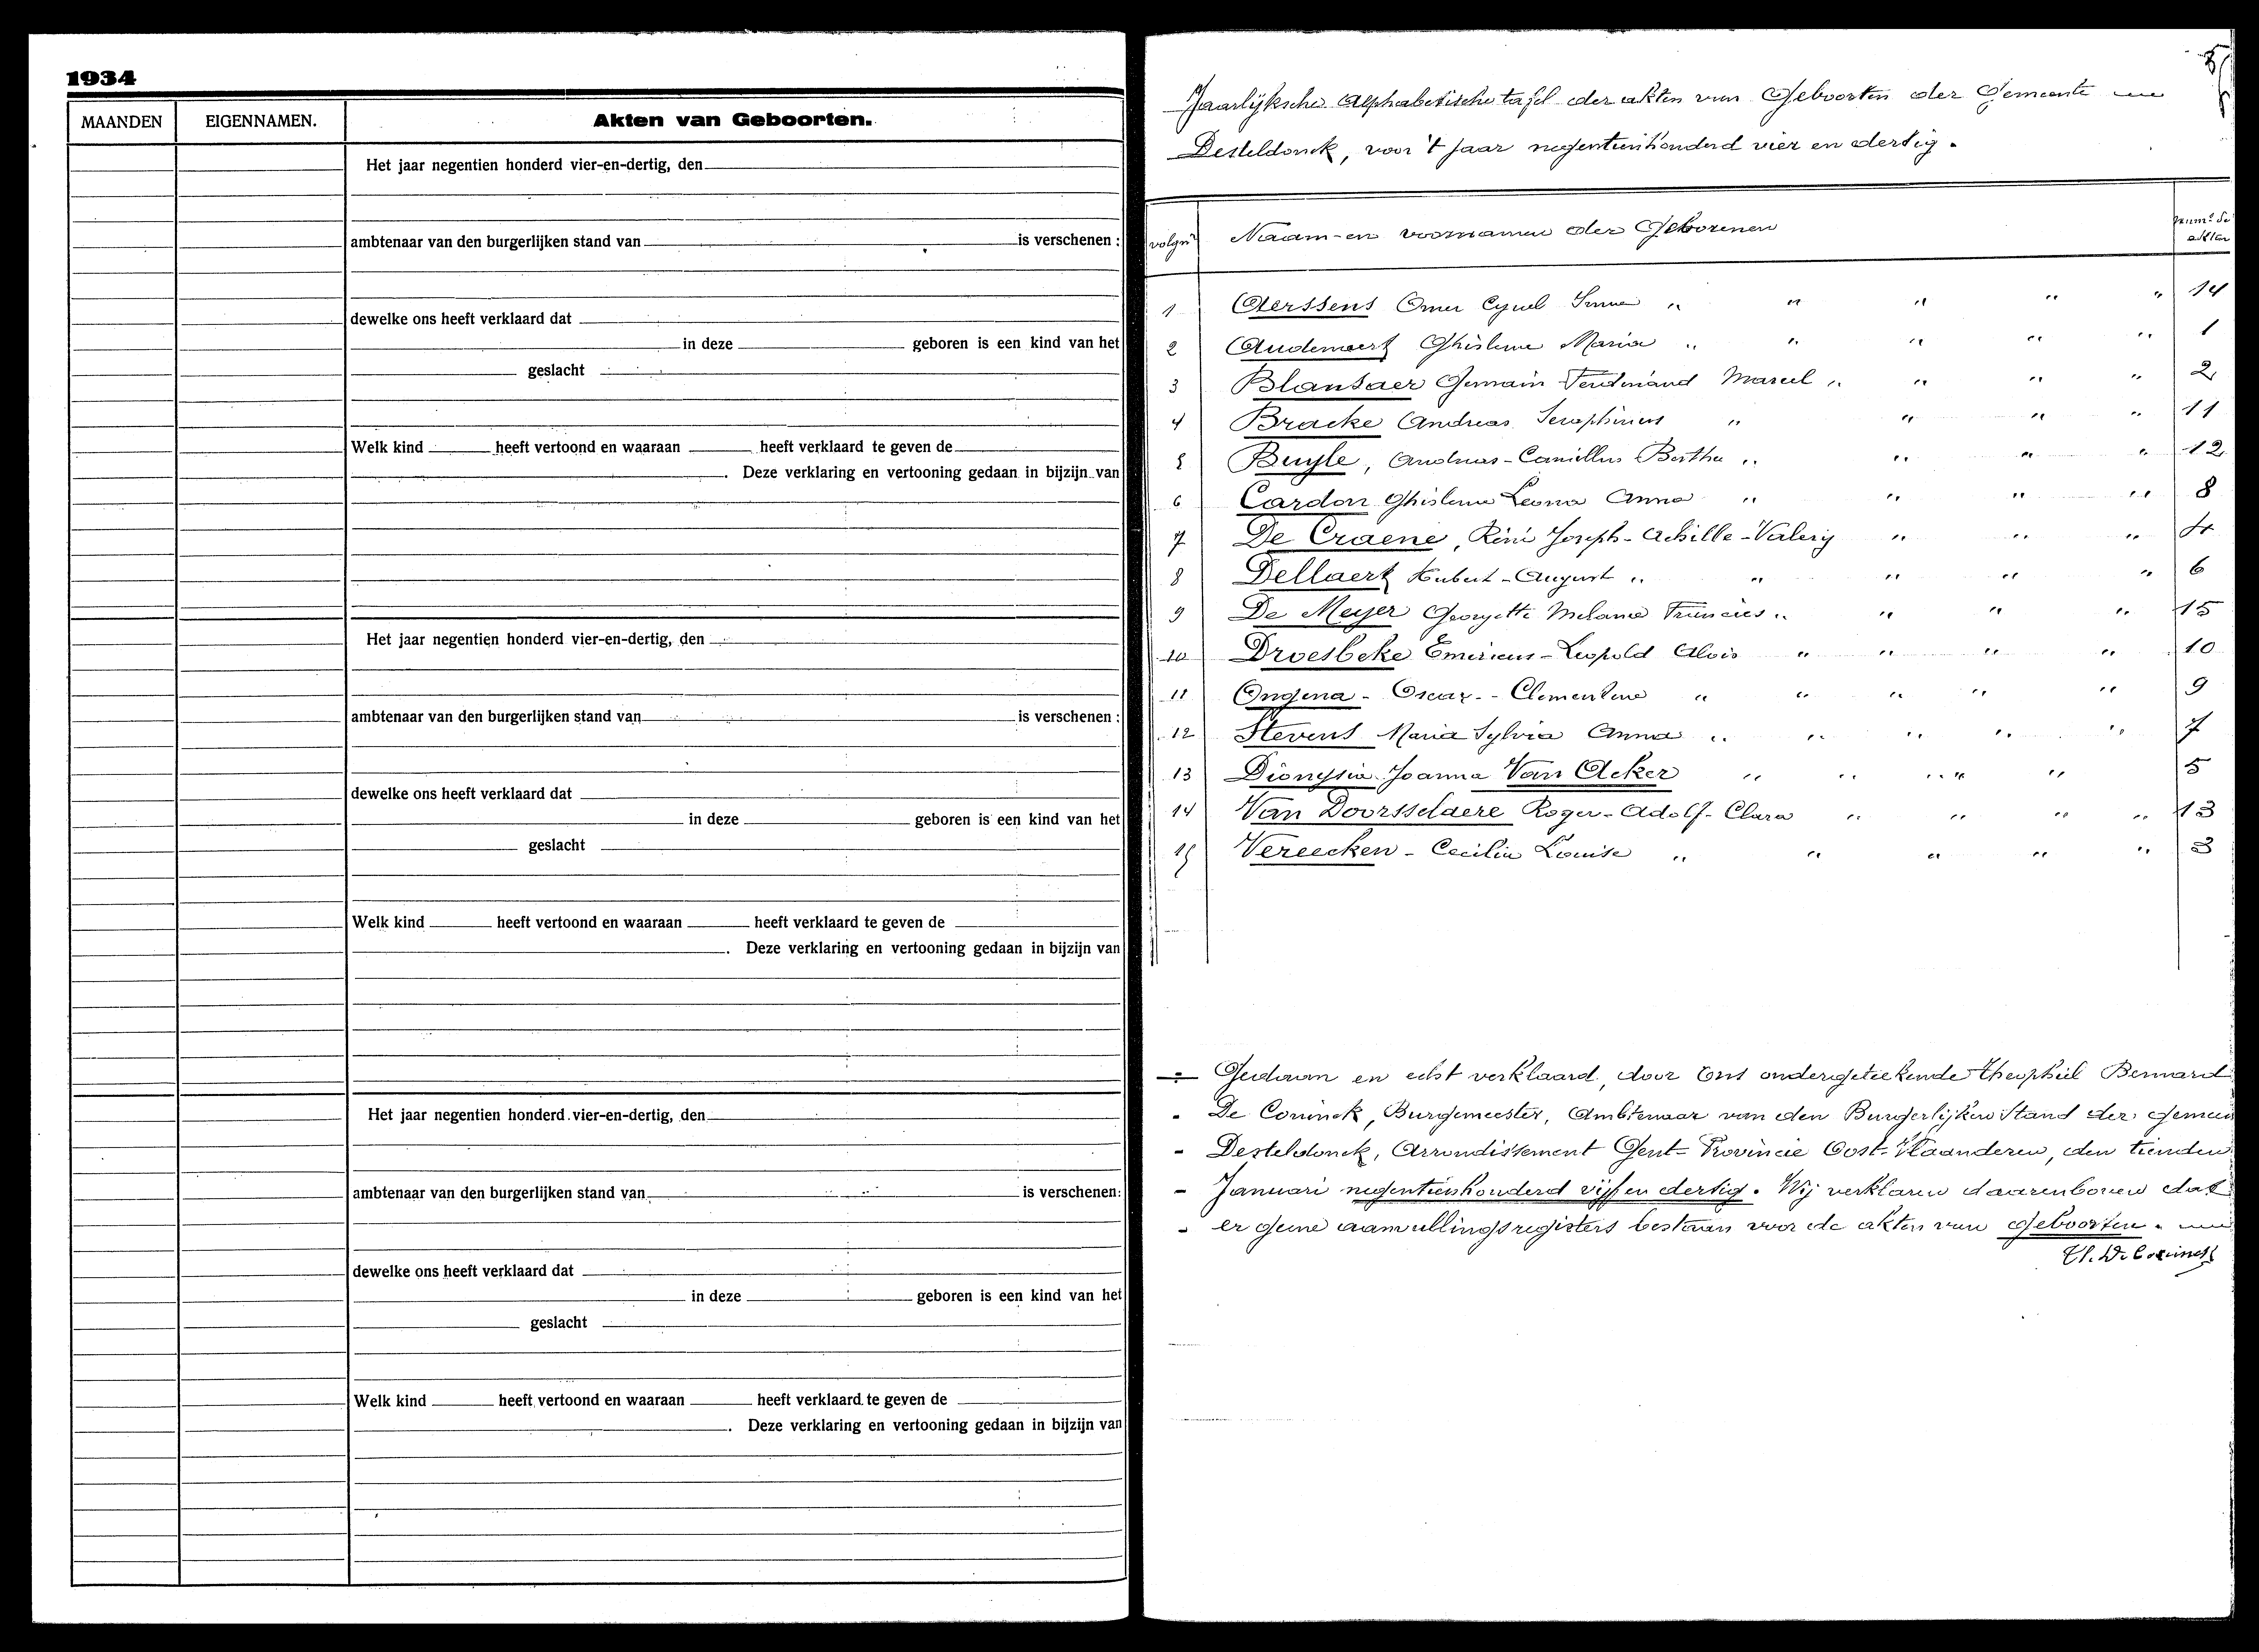 1934
MAANDEN EIGENNAMEN. Akten van Geboorten.
Het jaar negentien honderd vier-en-dertig, den
ambtenaar van den burgerlijken stand van is verschenen :
dewelke ons heeft verklaard dat
in deze geboren is een kind van het
geslacht
Welk kind heeft vertoond en waaraan heeft verklaard te geven de
. Deze verklaring en vertooning gedaan in bijzijn van
Het jaar negentien honderd vier-en-dertig, den
ambtenaar van den burgerlijken stand van is verschenen :
dewelke ons heeft verklaard dat
in deze geboren is een kind van het
geslacht
Welk kind heeft vertoond en waaraan heeft verklaard te geven de
. Deze verklaring en vertooning gedaan in bijzijn van
Het jaar negentien honderd vier-en-dertig, den
ambtenaar van den burgerlijken stand van is verschenen:
dewelke ons heeft verklaard dat
in deze geboren is een kind van het
geslacht
Welk kind heeft vertoond en waaraan heeft verklaard te geven de
. Deze verklaring en vertooning gedaan in bijzijn van
Jaarlijksche Alphabetische tafel der akten van Geboorten der Gemeente
Desteldonck, voor 't jaar negentienhonderd vier en dertig.
volgnr Naam-en voornamen der Geborenen akten
1 Aerssens Omer Cyriel " " " " " 14
2 Audenaert Ghislena Maria " " " " " 1
3 Blansaer Germain Ferdinand Marcel " " " " 2
4 Bracke Andreas Seraphinus " " " " 11
5 Buyle, Andreas-Camillus Bertha " " " " 12
6 Cardon Ghislena Leona Anna " " " " 8
7 De Craene, René Joseph-Achille-Valery " " " 4
8 Dellaert Hubert-August " " " " " 6
9 De Meyer Georgette Melanie " " " " 15
10 Droesbeke Emericus-Leopold Alois " " " " 10
11 Ongena - Oscar - Clementine " " " " " 9
12 Stevens Maria Sylvia Anna " " " " " 7
13 Dionysia Joanna Van Acker " " " " " 5
14 Van Doorsselaere Roger-Adolf-Clara " " " " 13
15 Vereecken - Cecilia Louise " " " " " 3
Gedaan en echt verklaard, door Ons ondergeteekende Theophiel Bernard
De Coninck, Burgemeester, Ambtenaar van den Burgerlijken Stand der gemeen
Desteldonck, Arrondissement Gent-Provincie Oost-Vlaanderen, den tienden
Januari negentienhonderd vijf en dertig. Wij verklaren daarenboven dat
er geene aanvullingsregisters bestaan voor de akten van geboorten.
Th. De Coninck